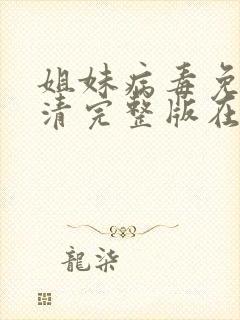 姐妹病毒免
清完整版在
龍柒